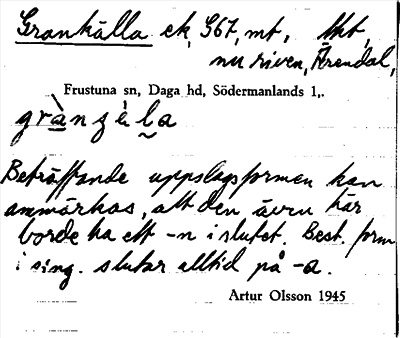 Grankälla ek, G67, mt, tkt,
nu riven, Ärendal,
Frustuna sn, Daga hd, Södermanlands l,.
grànzèla
Beträffande uppslagsformen kan
anmärkas, att den även här
borde ha ett -n i slutet. Best. form
i sing. slutar alltid på -a.
Artur Olsson 1945